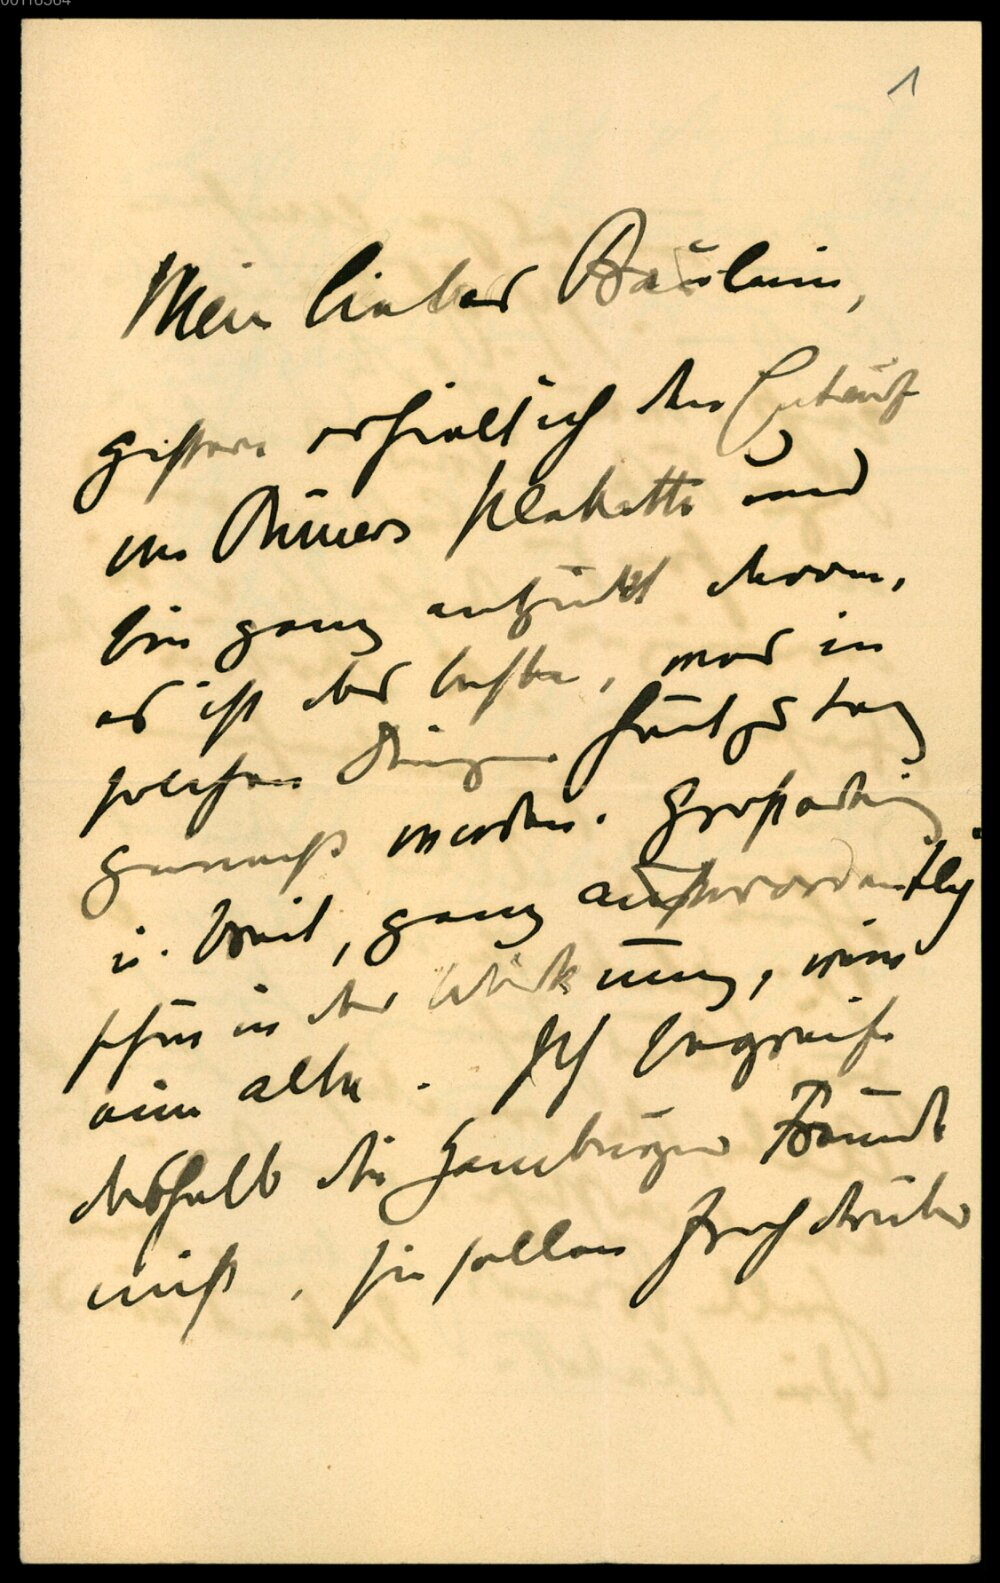 00116564
1
Mein liebes Fräulein,
gestern erhielt ich den Entwurf
von Römers Plakette und
bin ganz entzückt davon,
es ist das beste, was in
solchen Dingen heutzutag
gemacht worden. Großartig
u. breit, ganz außerordentlich
schön in der Wirkung, wie
eine alte. Ich begreife
deshalb die Hamburger Freunde
nicht, sie sollen froh drüber